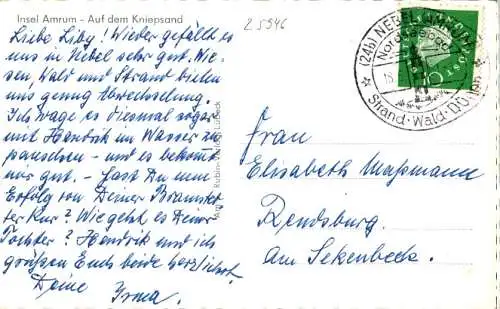 Insel Amrum - Auf dem Kniepsand
25946
Liebe Liby! Wieder gefällt es
uns in Nebel sehr gut. Wie-
sen Wald und Strand bieten
uns genug Abwechselung.
Ich wage es diesmal sogar
mit Hendrik im Wasser zu
pauschen - und es bekommt
mir gut. - Hast Du einen
Erfolg von Deiner Bramsted-
ter Kur? Wie geht es Deiner
Tochter? Hendrik und ich
grüßen Euch beide herzlichst.
Deine Irma.
(24b) NEBEL (AMRUM)
Nordseebad
Strand · Wald · Dünen
10
Frau
Elisabeth Maßmann
Rendsburg
Am Seekenbeck.